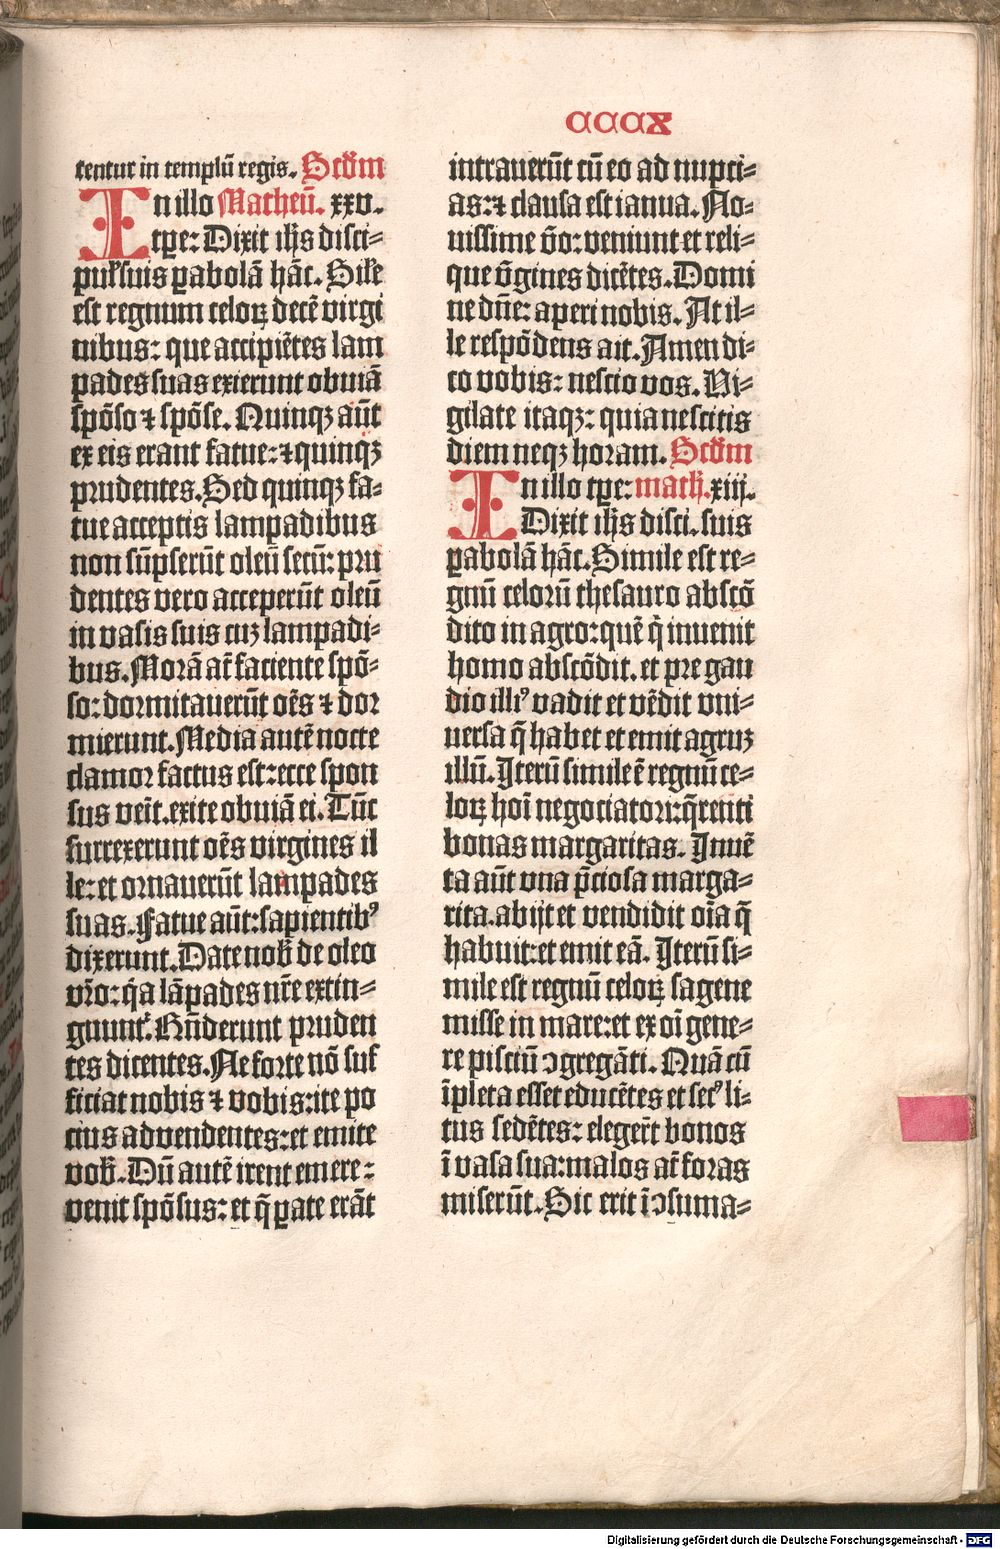 CCCX
tentur in templū regis. Scd̄m
In illo Matheū. xxv.
tpe: Dixit ih̄s disci⸗
pul̄ suis ꝑabolā hāc. Sil̄e
est regnum celoꝝ decē virgi
nibus: que accipiētes lam
pades suas exierunt obuiā
spōso ⁊ spōse. Quinqꝫ aūt
ex eis erant fatue: ⁊ quinqꝫ
prudentes. Sed quinqꝫ fa⸗
tue acceptis lampadibus
non sūpserūt oleū secū: pru
dentes vero acceperūt oleū
in vasis suis cuꝫ lampadi⸗
bus. Morā at̄ faciente spō⸗
so: dormitauerūt oēs ⁊ dor
mierunt. Media autē nocte
clamor factus est: ecce spon
sus veīt. exite obuiā ei. Tūc
surrexerunt oēs virgines il
le: et ornauerūt lampades
suas. Fatue aūt: sapientibꝰ
dixerunt. Date nob̄ de oleo
vr̄o: q̄a lāpades nr̄e extin⸗
guunt᷑. Rn̄derunt pruden
tes dicentes. Ne forte nō suf
ficiat nobis ⁊ vobis: ite po
cius ad vendentes: et emite
vob̄. Dū autē irent emere:
venit spōsus: et q̄ ꝑate erāt
intrauerūt cū eo ad nupci⸗
as: ⁊ clausa est ianua. No⸗
uissime v̄o: veniunt et reli⸗
que v̄gines dicētes. Domi
ne dn̄e: aperi nobis. At il⸗
le respōdens ait. Amen di⸗
co vobis: nescio vos. Vi⸗
gilate itaqꝫ: quia nescitis
diem neqꝫ horam. Scd̄m
In illo tpe: math̄. xiij.
Dixit ih̄s disci. suis
ꝑabolā hāc. Simile est re⸗
gnū celorū thesauro abscō
dito in agro: quē q̄ inuenit
homo abscōdit. et pre gau
dio illiꝰ vadit et vēdit vni⸗
uersa q̄ habet et emit agruꝫ
illū. Iterū simile ē regnū ce⸗
loꝝ hoī negociatori: q̄renti
bonas margaritas. Inuē
ta aūt vna p̄ciosa marga⸗
rita. abijt et vendidit oīa q̄
habuit: et emit eā. Iterū si⸗
mile est regnū celoꝝ sagene
misse in mare: et ex oī gene⸗
re pisciū ꝯgregāti. Quā cū
īpleta esset educētes et secꝰ li⸗
tus sedētes: eleger̄t bonos
ī vasa sua: malos at̄ foras
miserūt. Sic erit ī ꝯsuma⸗
Digitalisierung gefördert durch die Deutsche Forschungsgemeinschaft - DFG